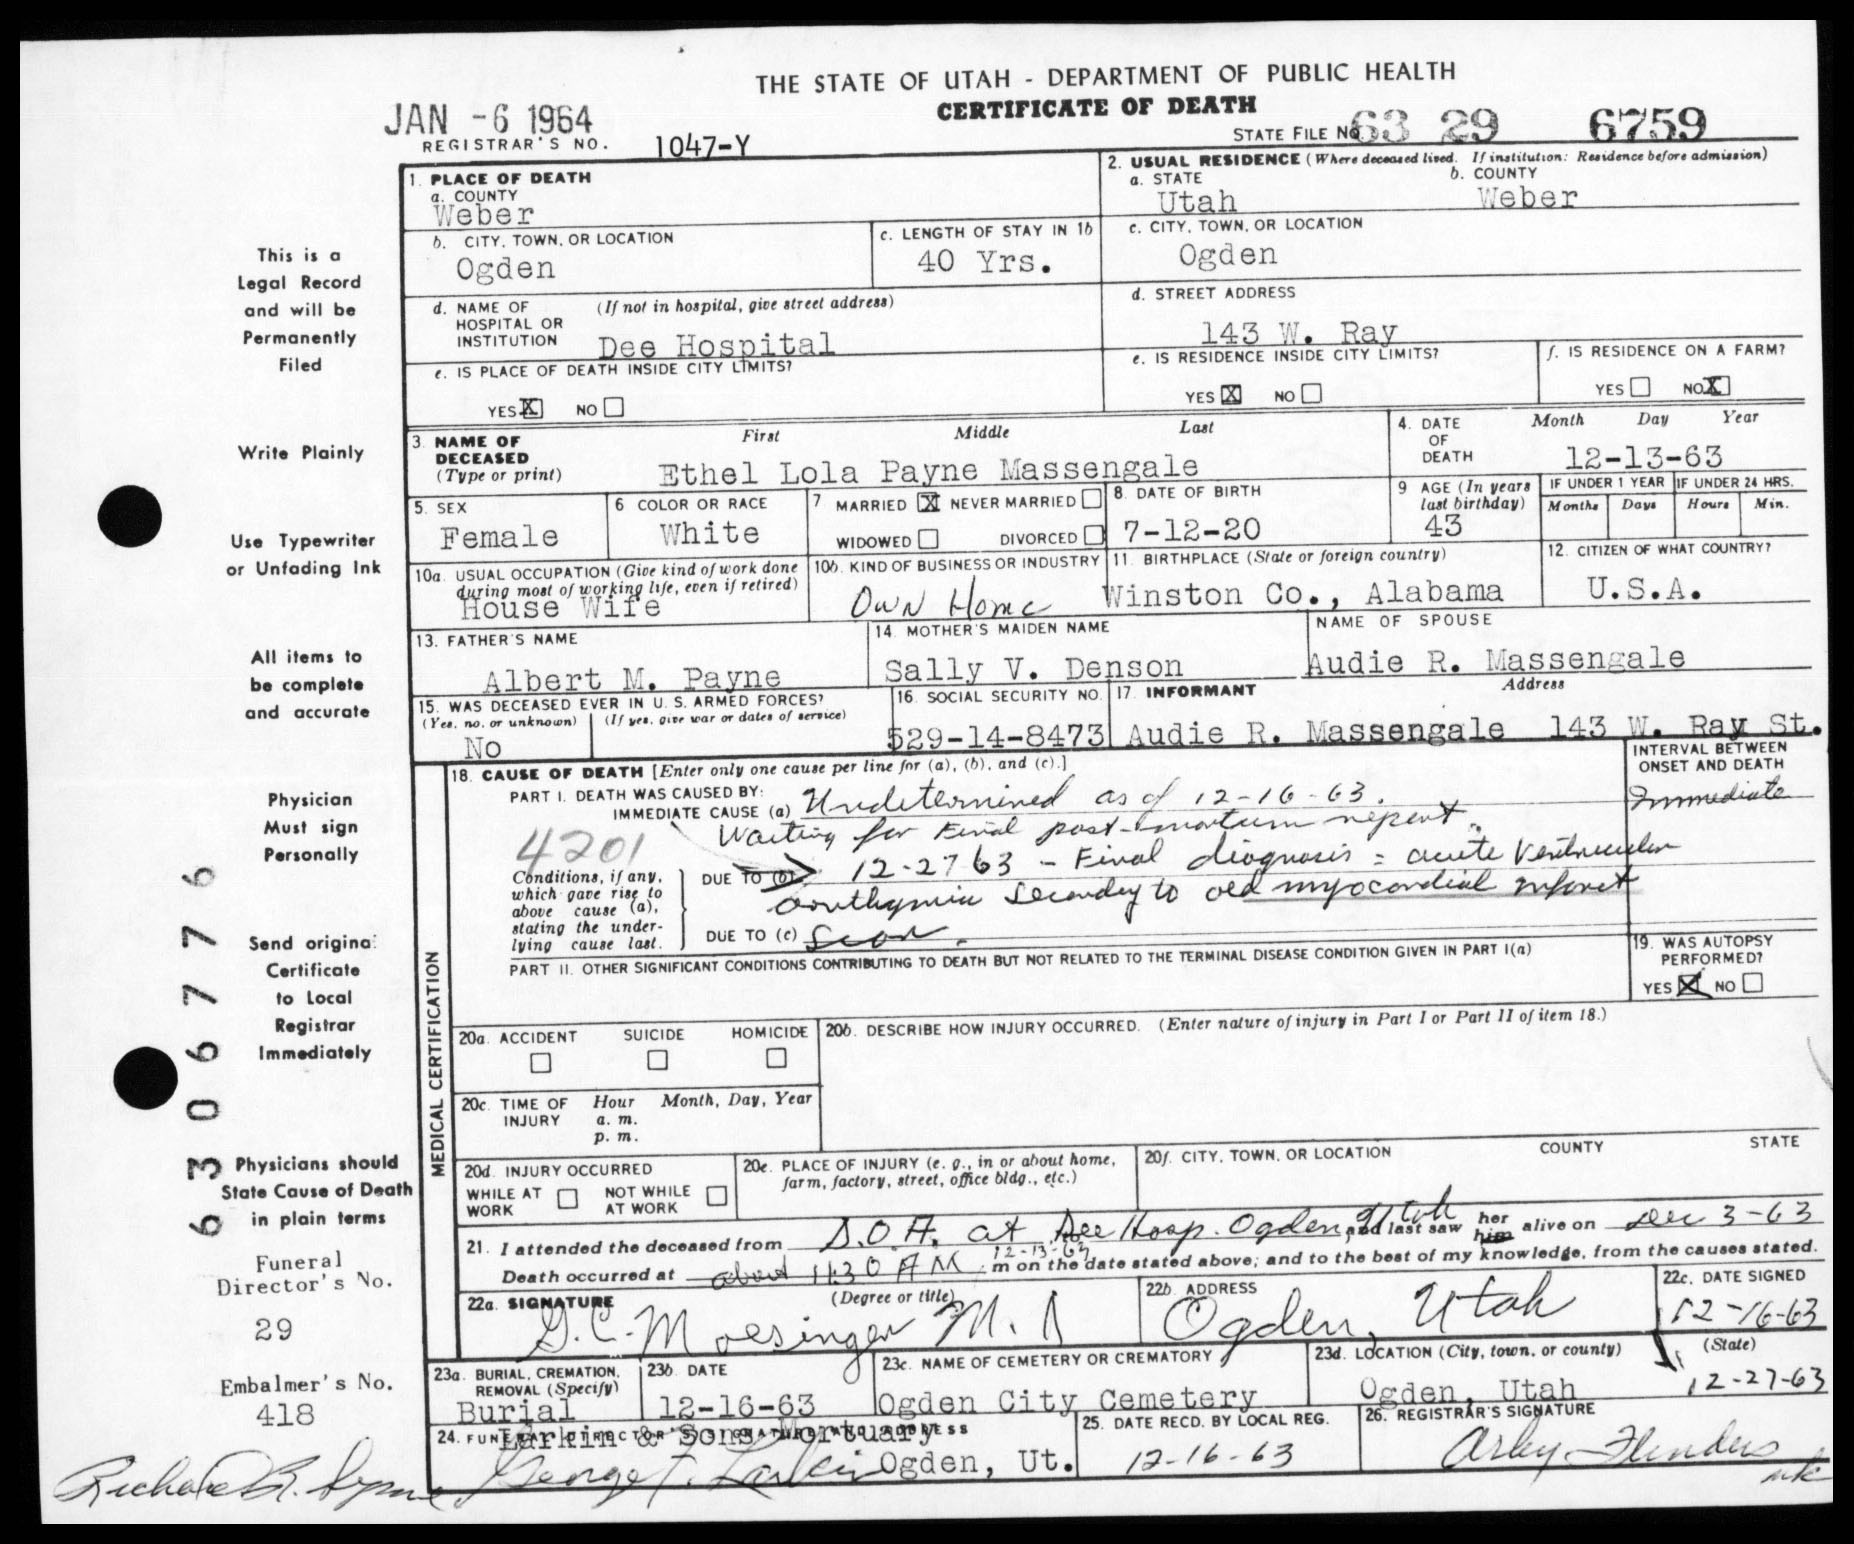 THE STATE OF UTAH - DEPARTMENT OF PUBLIC HEALTH
CERTIFICATE OF DEATH
JAN -6 1964
REGISTRAR'S NO. 1047-Y
STATE FILE NO. 63 29 6759
1. PLACE OF DEATH
a. COUNTY
Weber
2. USUAL RESIDENCE (Where deceased lived. If institution: Residence before admission)
a. STATE b. COUNTY
Utah Weber
b. CITY, TOWN, OR LOCATION
Ogden
c. LENGTH OF STAY IN 1b
40 Yrs.
c. CITY, TOWN, OR LOCATION
Ogden
d. NAME OF HOSPITAL OR INSTITUTION (If not in hospital, give street address)
Dee Hospital
d. STREET ADDRESS
143 W. Ray
e. IS PLACE OF DEATH INSIDE CITY LIMITS?
YES X NO
e. IS RESIDENCE INSIDE CITY LIMITS?
YES X NO
f. IS RESIDENCE ON A FARM?
YES NO X
3. NAME OF DECEASED (Type or print)
First Middle Last
Ethel Lola Payne Massengale
4. DATE OF DEATH
Month Day Year
12-13-63
5. SEX
Female
6 COLOR OR RACE
White
7 MARRIED X NEVER MARRIED
WIDOWED DIVORCED
8. DATE OF BIRTH
7-12-20
9 AGE (In years last birthday)
43
IF UNDER 1 YEAR
Months Days
IF UNDER 24 HRS.
Hours Min.
10a. USUAL OCCUPATION (Give kind of work done during most of working life, even if retired)
House Wife
10b. KIND OF BUSINESS OR INDUSTRY
Own Home
11. BIRTHPLACE (State or foreign country)
Winston Co., Alabama
12. CITIZEN OF WHAT COUNTRY?
U.S.A.
13. FATHER'S NAME
Albert M. Payne
14. MOTHER'S MAIDEN NAME
Sally V. Denson
NAME OF SPOUSE
Audie R. Massengale
15. WAS DECEASED EVER IN U. S. ARMED FORCES?
(Yes, no, or unknown) (If yes, give war or dates of service)
No
16. SOCIAL SECURITY NO.
529-14-8473
17. INFORMANT Address
Audie R. Massengale 143 W. Ray St.
MEDICAL CERTIFICATION
18. CAUSE OF DEATH [Enter only one cause per line for (a), (b), and (c).]
INTERVAL BETWEEN ONSET AND DEATH
PART I. DEATH WAS CAUSED BY:
IMMEDIATE CAUSE (a) Undetermined as of 12-16-63. Immediate
Waiting for Final post-mortum report.
4201
Conditions, if any, which gave rise to above cause (a), stating the underlying cause last.
DUE TO (b) 12-27 63 - Final diagnosis = acute Ventricular
arrthymia secondary to old myocardial infarct
DUE TO (c) scar.
PART II. OTHER SIGNIFICANT CONDITIONS CONTRIBUTING TO DEATH BUT NOT RELATED TO THE TERMINAL DISEASE CONDITION GIVEN IN PART I(a)
19. WAS AUTOPSY PERFORMED?
YES X NO
20a. ACCIDENT SUICIDE HOMICIDE
20b. DESCRIBE HOW INJURY OCCURRED. (Enter nature of injury in Part I or Part II of item 18.)
20c. TIME OF INJURY
Hour Month, Day, Year
a. m.
p. m.
20d. INJURY OCCURRED
WHILE AT WORK NOT WHILE AT WORK
20e. PLACE OF INJURY (e. g., in or about home, farm, factory, street, office bldg., etc.)
20f. CITY, TOWN, OR LOCATION COUNTY STATE
21. I attended the deceased from D.O.A. at Dee Hosp. Ogden Utah and last saw her him alive on Dec 3-63
Death occurred at about 11:30 AM 12-13-63 m on the date stated above; and to the best of my knowledge, from the causes stated.
22a. SIGNATURE (Degree or title)
G. C. Moesinger M. D
22b. ADDRESS
Ogden, Utah
22c. DATE SIGNED
12-16-63
12-27-63
23a. BURIAL, CREMATION, REMOVAL (Specify)
Burial
23b. DATE
12-16-63
23c. NAME OF CEMETERY OR CREMATORY
Ogden City Cemetery
23d. LOCATION (City, town, or county) (State)
Ogden, Utah
24. FUNERAL DIRECTOR'S SIGNATURE AND ADDRESS
Larkin & Sons Mortuary
George F. Larkin Ogden, Ut.
25. DATE RECD. BY LOCAL REG.
12-16-63
26. REGISTRAR'S SIGNATURE
Arley Flinders
This is a
Legal Record
and will be
Permanently
Filed
Write Plainly
Use Typewriter
or Unfading Ink
All items to
be complete
and accurate
Physician
Must sign
Personally
Send original
Certificate
to Local
Registrar
Immediately
Physicians should
State Cause of Death
in plain terms
6306776
Funeral
Director's No.
29
Embalmer's No.
418
Richard R.